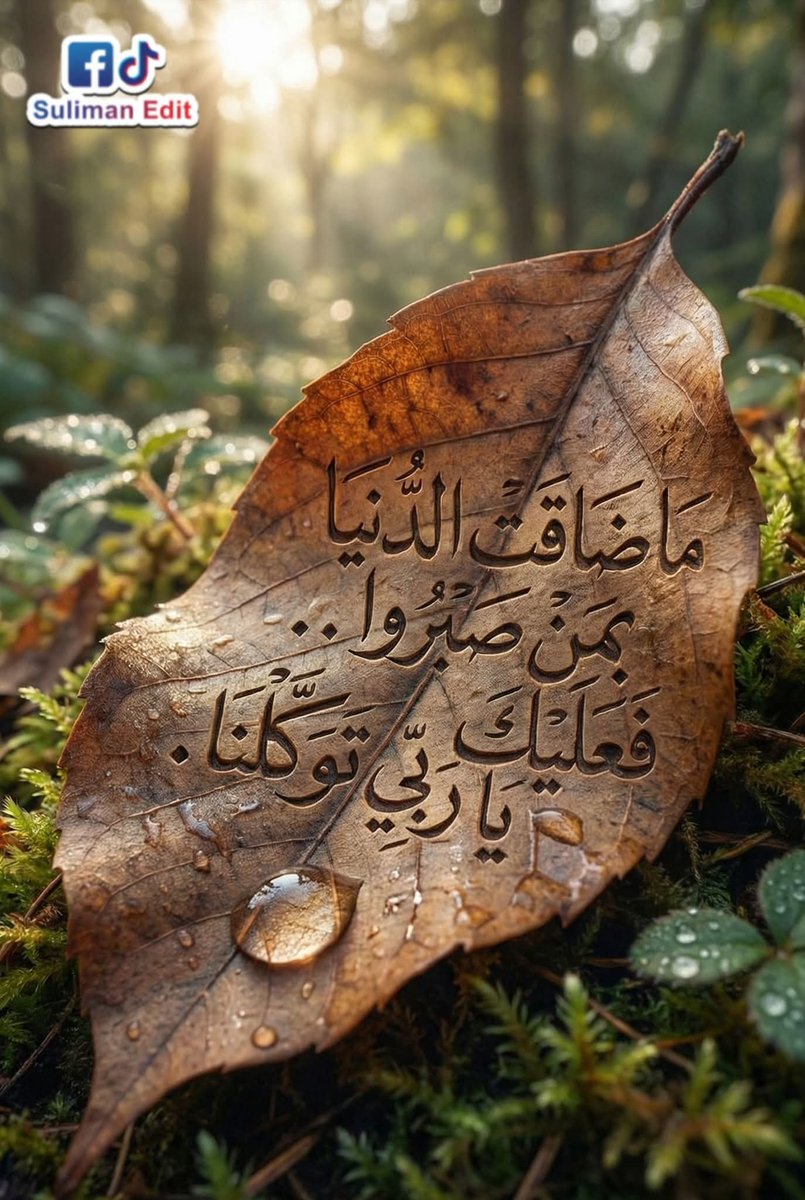 f
Suliman Edit
مَا ضَاقَتْ الدُّنيَا
بِمَنْ صَبَرُوا ..
فَعَلَيْكَ يَا رَبِّي تَوَكَّلْنَا.